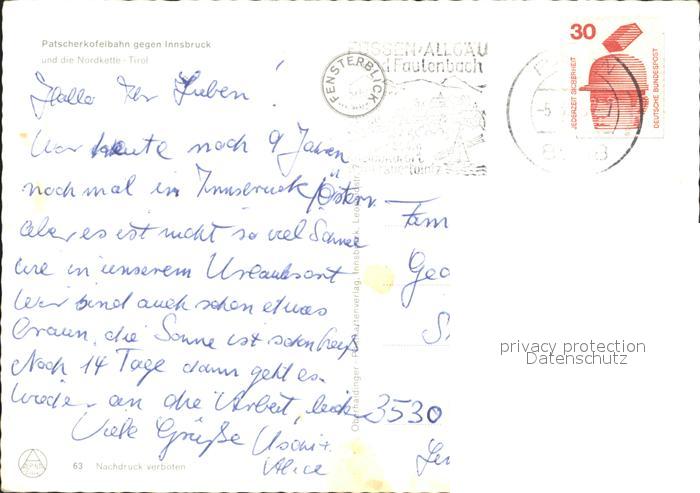 Patscherkofelbahn gegen Innsbruck
und die Nordkette - Tirol
Hallo Ihr Lieben!
War heute nach 9 Jahren
nochmal in Innsbruck/Österr.
Aber es ist nicht so viel Sonne
wie in unserem Urlaubsort
Wir sind auch schon etwas
braun, die Sonne ist schon heiß
Noch 14 Tage dann geht es
wieder an die Arbeit, leider
Viele Grüße Uschi +
Alice
63 Nachdruck verboten
FENSTERBLICK
FÜSSEN/ALLGÄU
Bad Faulenbach
30
JEDERZEIT SICHERHEIT
DEUTSCHE BUNDESPOST
Fam
Geo
S
3530
privacy protection
Datenschutz